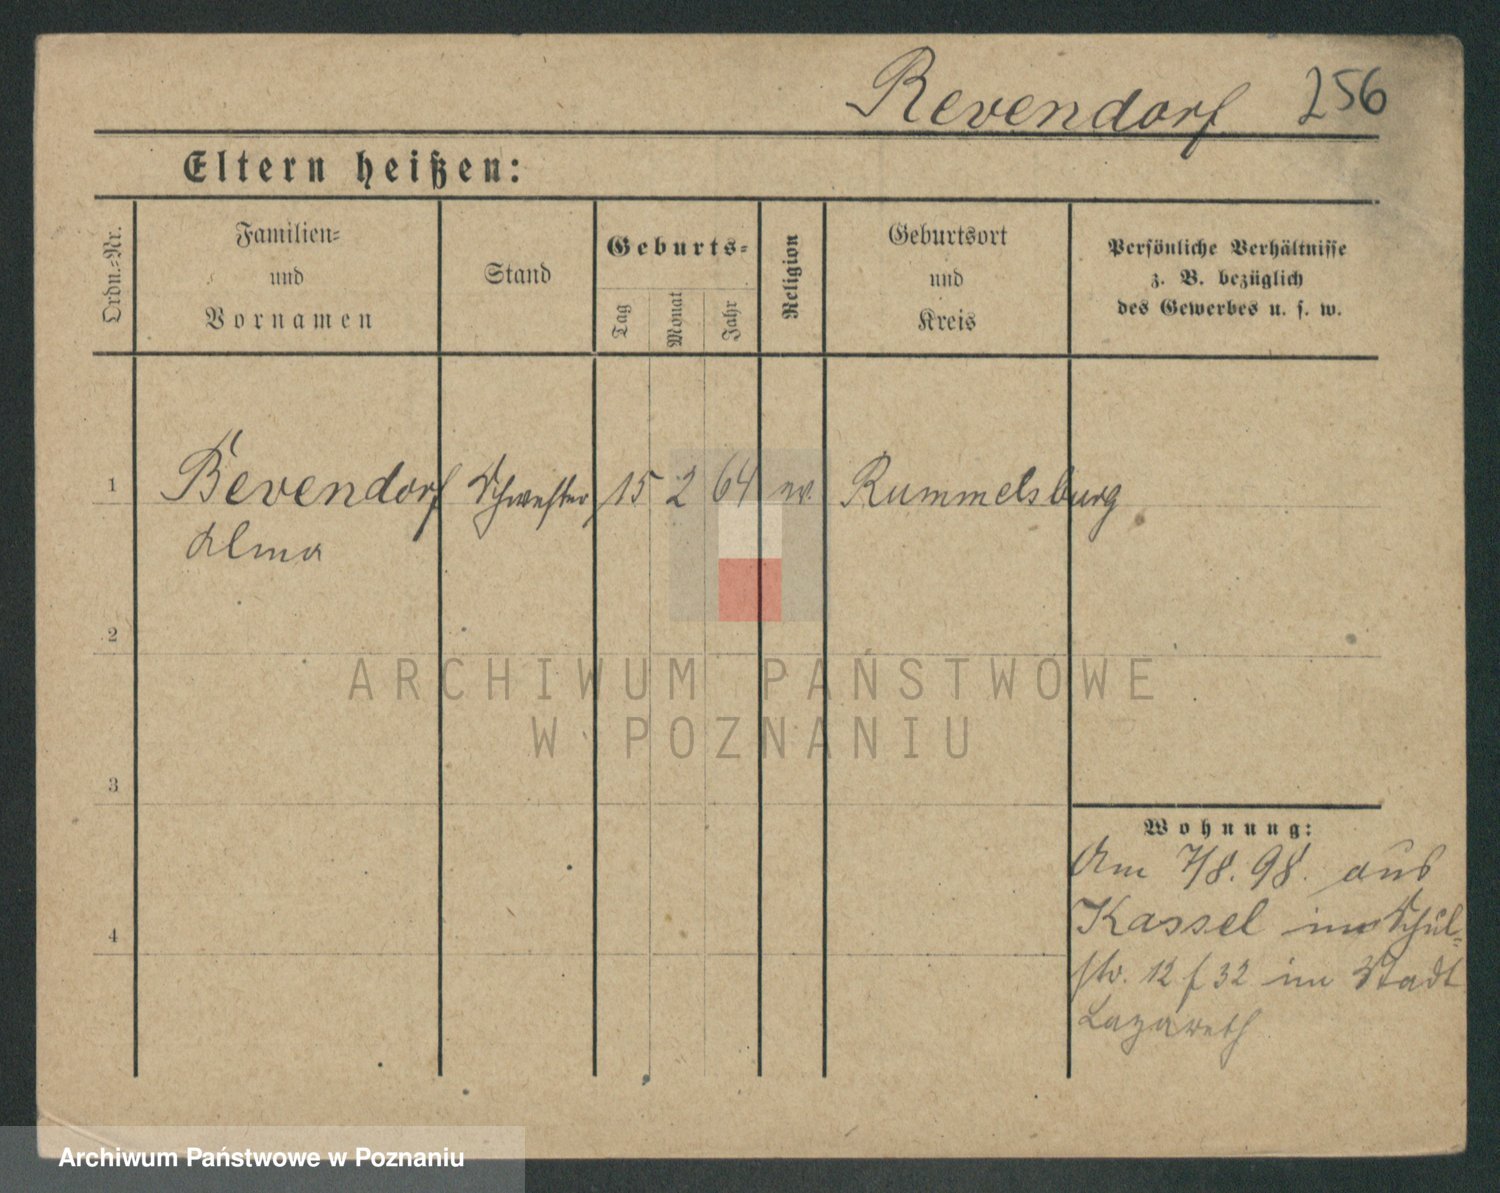 Bevendorf 256
Eltern heißen:
Ordn.-Nr.
Familien-
und
Vornamen
Stand
Geburts-
Tag
Monat
Jahr
Religion
Geburtsort
und
Kreis
Persönliche Verhältnisse
z. B. bezüglich
des Gewerbes u. s. w.
1 Bevendorf Schwester 15 2 64 ev. Rummelsburg
Alma
2
3
4
Wohnung:
Am 7/8. 98. aus
Kassel Schul-
str. 12 f 32 im Stadt
Lazareth
ARCHIWUM PAŃSTWOWE
W POZNANIU
Archiwum Państwowe w Poznaniu